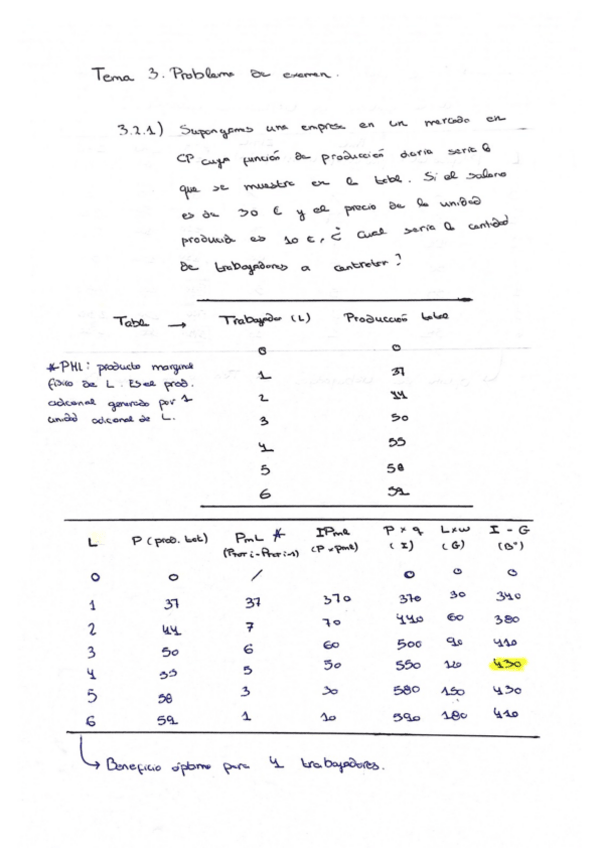 Tema 3. Problema de examen.
3.2.1) Supongamos una empresa en un mercado en
CP cuya función de producción diaria sería la
que se muestra en la tabla. Si el salario
es de 30 € y el precio de la unidad
producida es 10 €, ¿ cual sería la cantidad
de trabajadores a contratar?
Tabla → Trabajador (L) Producción total
0 0
1 37
2 44
3 50
4 55
5 58
6 59
*PML: producto marginal
físico de L. Es el prod.
adicional generado por 1
unidad adicional de L.
L P (prod. tot) PmL * IPmL P x q Lxw I - G
(Ptot i - Ptot i-1) (P x PmL) (I) (G) (Bº)
0 0 / 0 0 0
1 37 37 370 370 30 340
2 44 7 70 440 60 380
3 50 6 60 500 90 410
4 55 5 50 550 120 430
5 58 3 30 580 150 430
6 59 1 10 590 180 410
↳ Beneficio óptimo para 4 trabajadores.